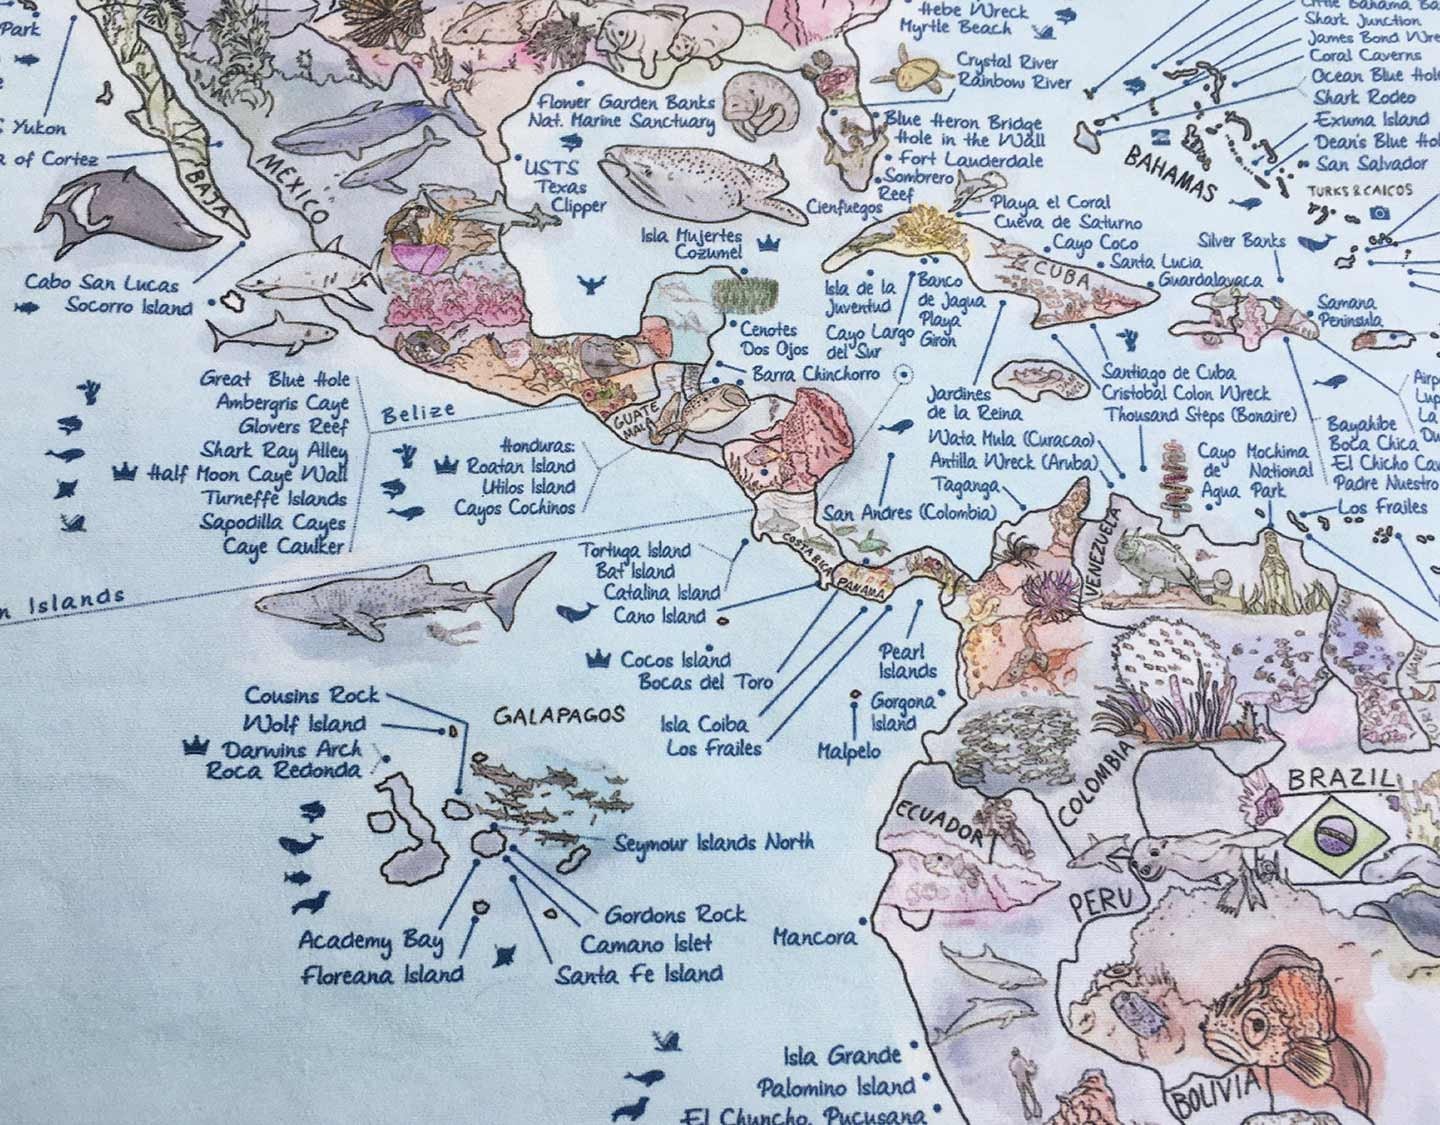 Park
Hebe Wreck
Myrtle Beach
Shark Junction
James Bond Wre
Coral Caverns
Ocean Blue Hole
Shark Rodeo
Exuma Island
Dean's Blue Hol
San Salvador
Crystal River
Rainbow River
Flower Garden Banks
Nat. Marine Sanctuary
Blue Heron Bridge
Hole in the Wall
Fort Lauderdale
Sombrero
Reef
Yukon
of Cortez
BAJA
MEXICO
USTS
Texas
Clipper
BAHAMAS
TURKS & CAICOS
Cienfuegos
Playa el Coral
Cueva de Saturno
Cayo Coco
Santa Lucia
Guardalavaca
Silver Banks
Isla Mujertes
Cozumel
CUBA
Cabo San Lucas
Socorro Island
Isla de la
Juventud
Banco
de Jagua
Playa
Giron
Cayo Largo
del Sur
Samana
Peninsula
Cenotes
Dos Ojos
Barra Chinchorro
Great Blue Hole
Ambergris Caye
Glovers Reef
Shark Ray Alley
Half Moon Caye Wall
Turneffe Islands
Sapodilla Cayes
Caye Caulker
Belize
GUATE
MALA
Honduras:
Roatan Island
Utilos Island
Cayos Cochinos
Jardines
de la Reina
Santiago de Cuba
Cristobal Colon Wreck
Thousand Steps (Bonaire)
Wata Mula (Curacao)
Antilla Wreck (Aruba)
Taganga
San Andres (Colombia)
Cayo
de
Agua
Mochima
National
Park
Airp
Lup
La
Bayahibe
Boca Chica
El Chicho Cav
Padre Nuestro
Los Frailes
n Islands
Tortuga Island
Bat Island
Catalina Island
Cano Island
COSTA RICA
PANAMA
VENEZUELA
Cocos Island
Bocas del Toro
Isla Coiba
Los Frailes
Pearl
Islands
Gorgona
Island
Malpelo
Cousins Rock
Wolf Island
Darwins Arch
Roca Redonda
GALAPAGOS
Seymour Islands North
Gordons Rock
Camano Islet
Santa Fe Island
Academy Bay
Floreana Island
COLOMBIA
ECUADOR
BRAZIL
PERU
Mancora
Isla Grande
Palomino Island
El Chuncho, Pucusana
BOLIVIA